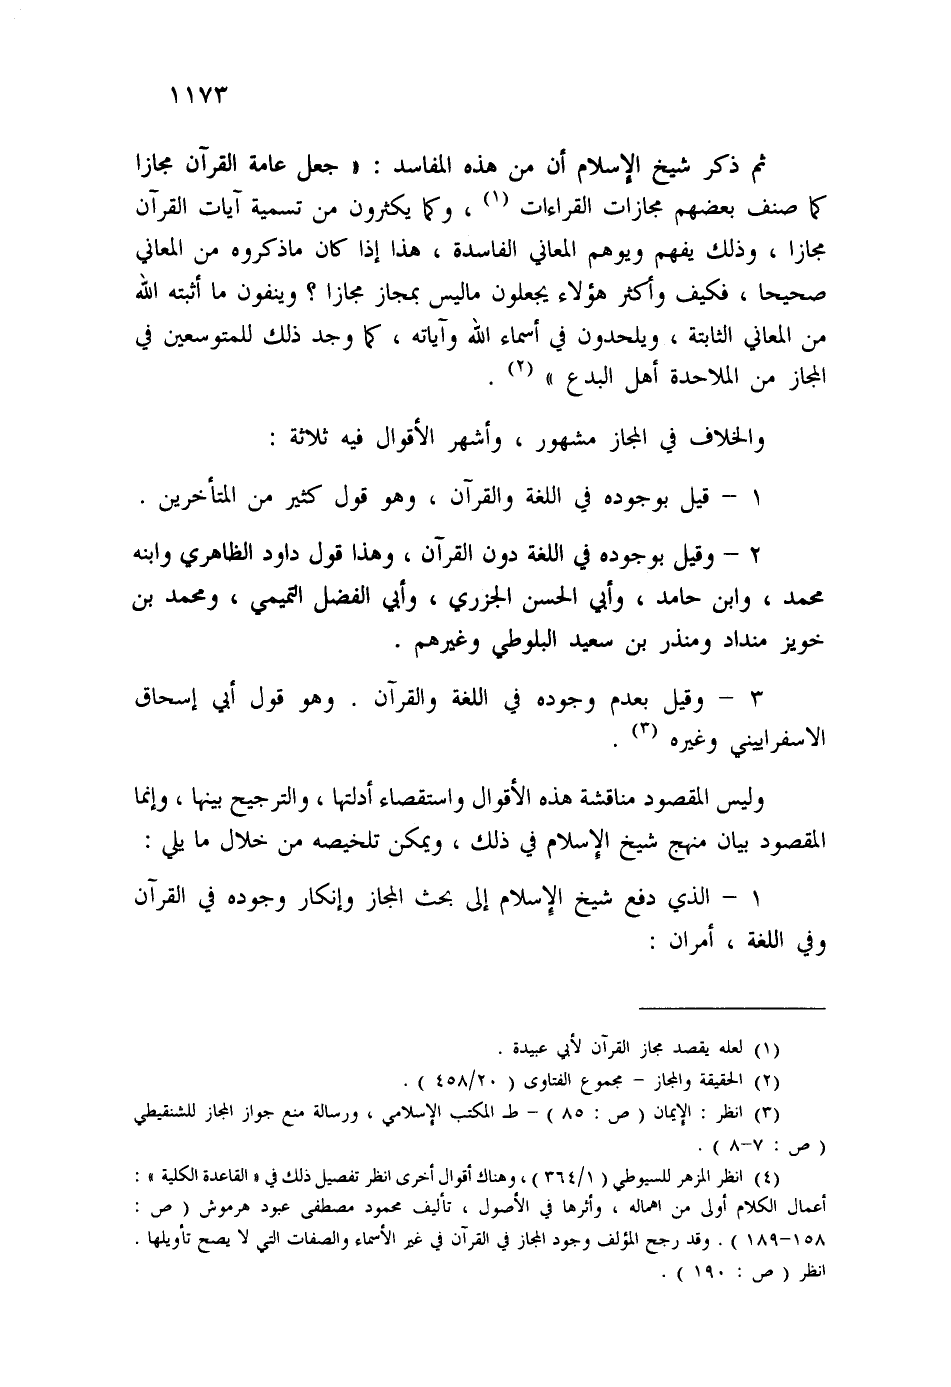 ١١٧٣
ثم ذكر شيخ الإسلام أن من هذه المفاسد : « جعل عامة القرآن مجازا
كما صنف بعضهم مجازات القراءات (١) ، وكما يكثرون من تسمية آيات القرآن
مجازا ، وذلك يفهم ويوهم المعاني الفاسدة ، هذا إذا كان ماذكروه من المعاني
صحيحا ، فكيف وأكثر هؤلاء يجعلون ماليس بمجاز مجازا ؟ وينفون ما أثبته الله
من المعاني الثابتة ، ويلحدون في أسماء الله وآياته ، كما وجد ذلك للمتوسعين في
المجاز من الملاحدة أهل البدع » (٢) .
والخلاف في المجاز مشهور ، وأشهر الأقوال فيه ثلاثة :
١ – قيل بوجوده في اللغة والقرآن ، وهو قول كثير من المتأخرين .
٢ – وقيل بوجوده في اللغة دون القرآن ، وهذا قول داود الظاهري وابنه
محمد ، وابن حامد ، وأبي الحسن الجزري ، وأبي الفضل التميمي ، ومحمد بن
خويز منداد ومنذر بن سعيد البلوطي وغيرهم .
٣ – وقيل بعدم وجوده في اللغة والقرآن . وهو قول أبي إسحاق
الاسفراييني وغيره (٣) .
وليس المقصود مناقشة هذه الأقوال واستقصاء أدلتها ، والترجيح بينها ، وإنما
المقصود بيان منهج شيخ الإسلام في ذلك ، ويمكن تلخيصه من خلال ما يلي :
١ – الذي دفع شيخ الإسلام إلى بحث المجاز وإنكار وجوده في القرآن
وفي اللغة ، أمران :
(١) لعله يقصد مجاز القرآن لأبي عبيدة .
(٢) الحقيقة والمجاز – مجموع الفتاوى ( ٤٥٨/٢٠ ) .
(٣) انظر : الإيمان ( ص : ٨٥ ) – طـ المكتب الإسلامي ، ورسالة منع جواز المجاز للشنقيطي
( ص : ٧–٨ ) .
(٤) انظر المزهر للسيوطي ( ٣٦٤/١ ) ، وهناك أقوال أخرى انظر تفصيل ذلك في « القاعدة الكلية » :
أعمال الكلام أولى من اهماله ، وأثرها في الأصول ، تأليف محمود مصطفى عبود هرموش ( ص :
١٥٨–١٨٩ ) . وقد رجح المؤلف وجود المجاز في القرآن في غير الأسماء والصفات التي لا يصح تأويلها .
انظر ( ص : ١٩٠ ) .